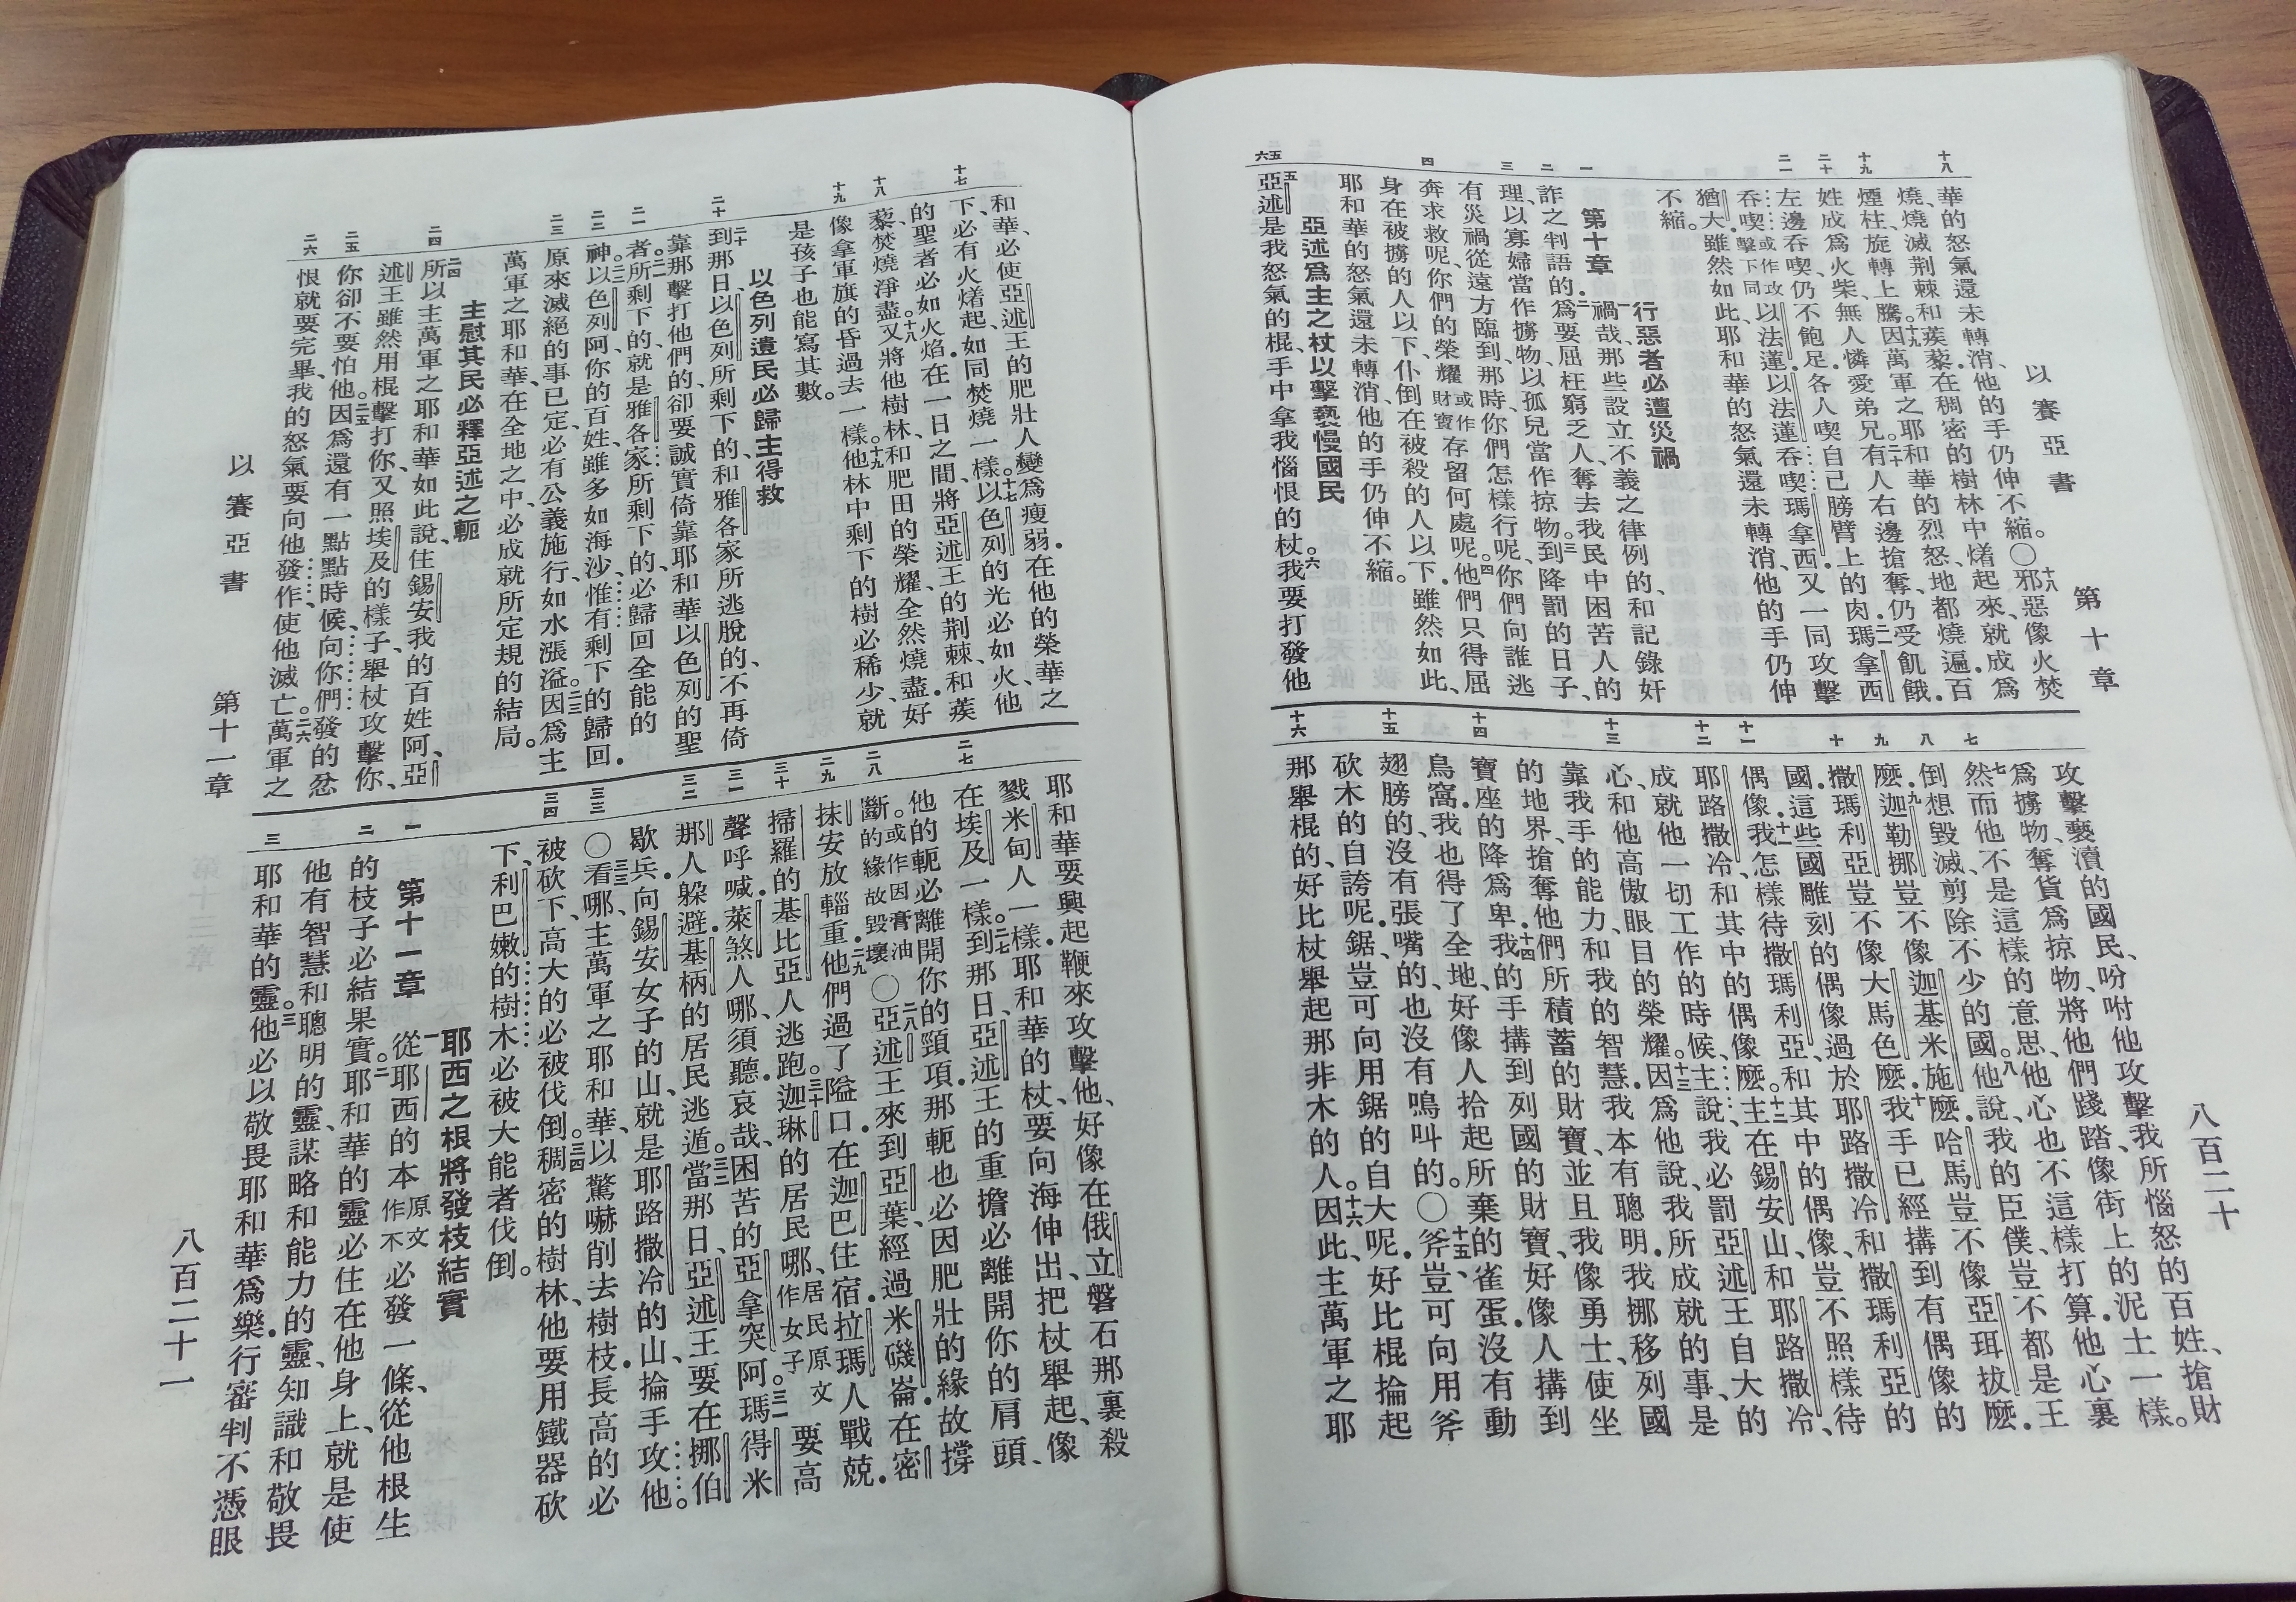 以賽亞書
第十章
八百二十
十八
十九
二十
二一
一
二
三
四
五
六
華的怒氣還未轉消、他的手仍伸不縮。〇十八邪惡像火焚
燒、燒滅荆棘和蒺藜．在稠密的樹林中着起來、就成爲
煙柱、旋轉上騰。十九因萬軍之耶和華的烈怒、地都燒遍．百
姓成爲火柴．無人憐愛弟兄。二十有人右邊搶奪、仍受飢餓．
左邊吞喫、仍不飽足．各人喫自己膀臂上的肉．二一瑪拿西
吞喫或作攻擊下同以法蓮、以法蓮吞喫瑪拿西．又一同攻擊
猶大．雖然如此、耶和華的怒氣還未轉消、他的手仍伸
不縮。
行惡者必遭災禍
第十章 一禍哉、那些設立不義之律例的、和記錄奸
詐之判語的．二爲要屈枉窮乏人、奪去我民中困苦人的
理、以寡婦當作擄物、以孤兒當作掠物。三到降罰的日子、
有災禍從遠方臨到、那時你們怎樣行呢、你們向誰逃
奔求救呢、你們的榮耀或作財寶存留何處呢。四他們只得屈
身在被擄的人以下、仆倒在被殺的人以下．雖然如此、
耶和華的怒氣還未轉消、他的手仍伸不縮。
亞述爲主之杖以擊褻慢國民
五亞述是我怒氣的棍、手中拿我惱恨的杖。六我要打發他
七
八
九
十
十一
十二
十三
十四
十五
十六
攻擊褻瀆的國民、吩咐他攻擊我所惱怒的百姓、搶財
爲擄物、奪貨爲掠物、將他們踐踏、像街上的泥土一樣。
七然而他不是這樣的意思、他心也不這樣打算．他心裏
倒想毀滅、剪除不少的國。八他說、我的臣僕、豈不都是王
麼．九迦勒挪豈不像迦基米施麼．哈馬豈不像亞珥拔麼．
撒瑪利亞豈不像大馬色麼．十我手已經搆到有偶像的
國．這些國雕刻的偶像、過於耶路撒冷和撒瑪利亞的
偶像．十一我怎樣待撒瑪利亞、和其中的偶像、豈不照樣待
耶路撒冷和其中的偶像麼。十二主在錫安山、和耶路撒冷、
成就他一切工作的時候、主說、我必罰亞述王自大的
心、和他高傲眼目的榮耀．十三因爲他說、我所成就的事、是
靠我手的能力、和我的智慧．我本有聰明．我挪移列國
的地界、搶奪他們所積蓄的財寶、並且我像勇士、使坐
寶座的降爲卑．十四我的手搆到列國的財寶、好像人搆到
鳥窩、我也得了全地、好像人拾起所棄的雀蛋．沒有動
翅膀的、沒有張嘴的、也沒有鳴叫的。〇十五斧豈可向用斧
砍木的自誇呢．鋸豈可向用鋸的自大呢．好比棍掄起
那舉棍的、好比杖舉起那非木的人。十六因此、主萬軍之耶
以賽亞書
第十一章
八百二十一
十七
十八
十九
二十
二一
二二
二三
二四
二五
二六
和華、必使亞述王的肥壯人變爲瘦弱．在他的榮華之
下、必有火着起、如同焚燒一樣。十七以色列的光必如火、他
的聖者必如火焰．在一日之間、將亞述王的荆棘、和蒺
藜、焚燒淨盡．十八又將他樹林、和肥田的榮耀、全然燒盡．好
像拿軍旗的昏過去一樣。十九他林中剩下的樹必稀少、就
是孩子也能寫其數。
以色列遺民必歸主得救
二十到那日、以色列所剩下的、和雅各家所逃脫的、不再倚
靠那擊打他們的、卻要誠實倚靠耶和華以色列的聖
者。二一所剩下的、就是雅各家所剩下的、必歸回全能的
神。二二以色列阿、你的百姓、雖多如海沙、惟有剩下的歸回．
原來滅絕的事已定、必有公義施行、如水漲溢。二三因爲主
萬軍之耶和華、在全地之中、必成就所定規的結局。
主慰其民必釋亞述之軛
二四所以主萬軍之耶和華如此說、住錫安我的百姓阿、亞
述王雖然用棍擊打你、又照埃及的樣子、舉杖攻擊你、
你卻不要怕他。二五因爲還有一點點時候、向你們發的忿
恨就要完畢、我的怒氣要向他發作、使他滅亡。二六萬軍之
二七
二八
二九
三十
三一
三二
三三
三四
一
二
三
耶和華要興起鞭來攻擊他、好像在俄立磐石那裏殺
戮米甸人一樣．耶和華的杖、要向海伸出、把杖舉起、像
在埃及一樣。二七到那日、亞述王的重擔必離開你的肩頭、
他的軛必離開你的頸項．那軛也必因肥壯的緣故撐
斷。或作因膏油的緣故毀壞〇二八亞述王來到亞葉、經過米磯崙．在密
抹安放輜重．二九他們過了隘口、在迦巴住宿．拉瑪人戰兢．
掃羅的基比亞人逃跑。三十迦琳的居民哪、居民原文作女子要高
聲呼喊．萊煞人哪、須聽．哀哉、困苦的亞拿突阿。三一瑪得米
那人躲避．基柄的居民逃遁。三二當那日、亞述王要在挪伯
歇兵、向錫安女子的山、就是耶路撒冷的山、掄手攻他。
〇三三看哪、主萬軍之耶和華、以驚嚇削去樹枝．長高的必
被砍下、高大的必被伐倒。三四稠密的樹林、他要用鐵器砍
下、利巴嫩的樹木必被大能者伐倒。
耶西之根將發枝結實
第十一章 一從耶西的本原文作不必發一條、從他根生
的枝子必結果實。二耶和華的靈必住在他身上、就是使
他有智慧和聰明的靈、謀略和能力的靈、知識和敬畏
耶和華的靈。三他必以敬畏耶和華爲樂．行審判不憑眼